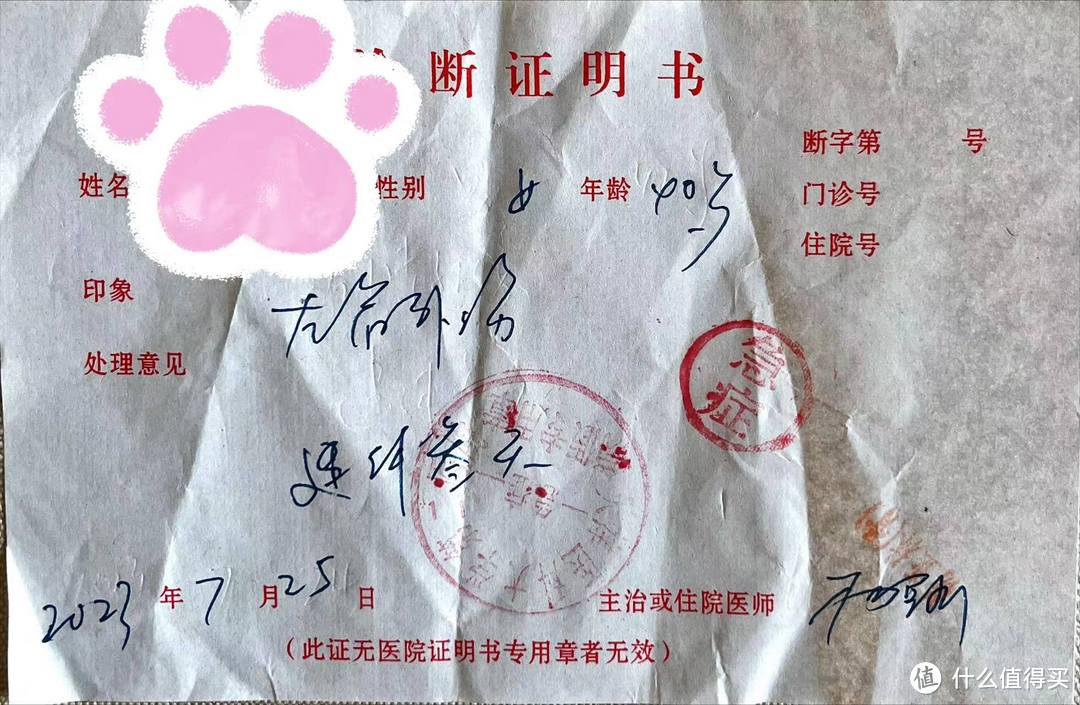 断证明书
断字第 号
姓名 性别 女 年龄 40岁 门诊号
住院号
印象 左肩外伤
处理意见
急症
建休叁天
2023年7月25日 主治或住院医师
（此证无医院证明书专用章者无效）
值 什么值得买